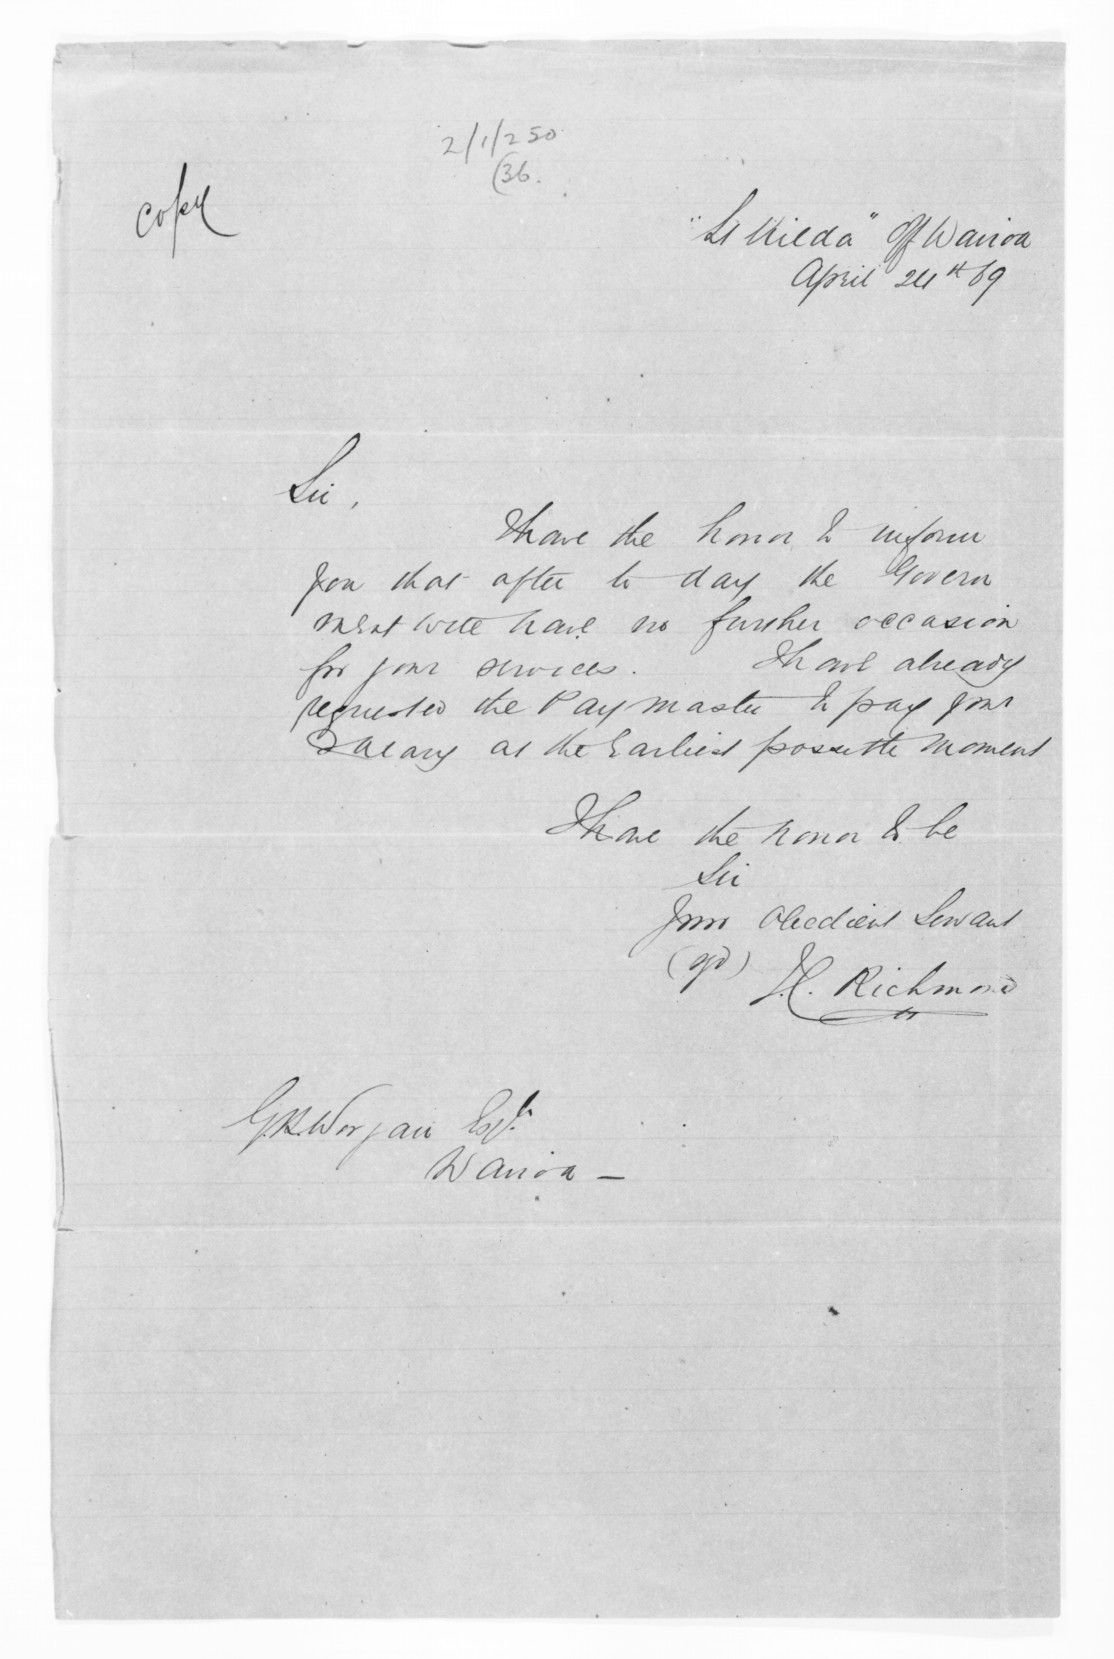 2/1/250
(36.
Copy
"St Kilda" off Wairoa
April 24th 69
Sir,
I have the honor to inform
you that after to day the Govern
ment will have no further occasion
for your services. I have already
requested the Paymaster to pay your
Salary at the Earliest possible moment
I have the honor to be
Sir
Your Obedient Servant
(sgd) J.C. Richmond
G.B. Worgan Esqr.
Wairoa -